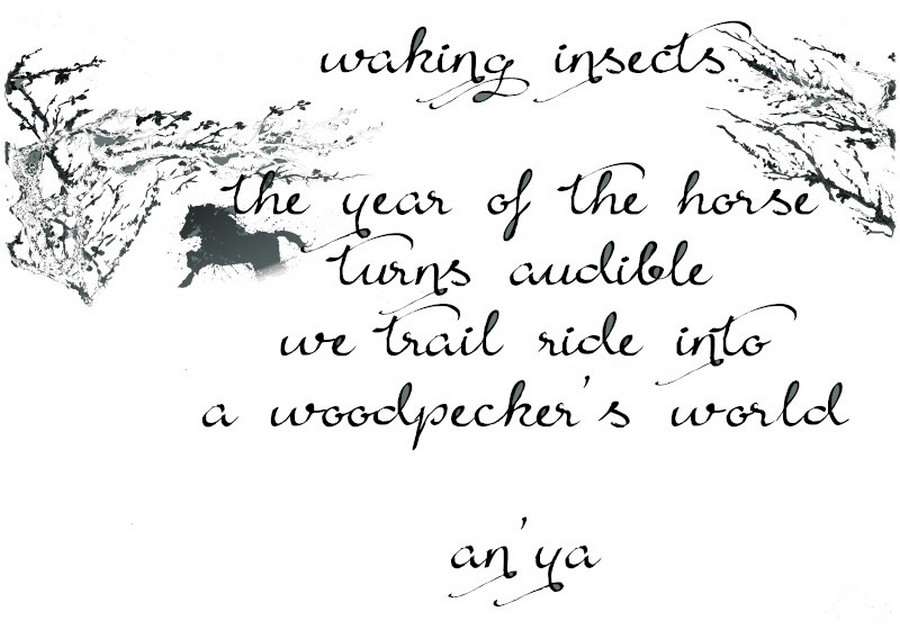 waking insects
the year of the horse
turns audible
we trail ride into
a woodpecker's world
an'ya